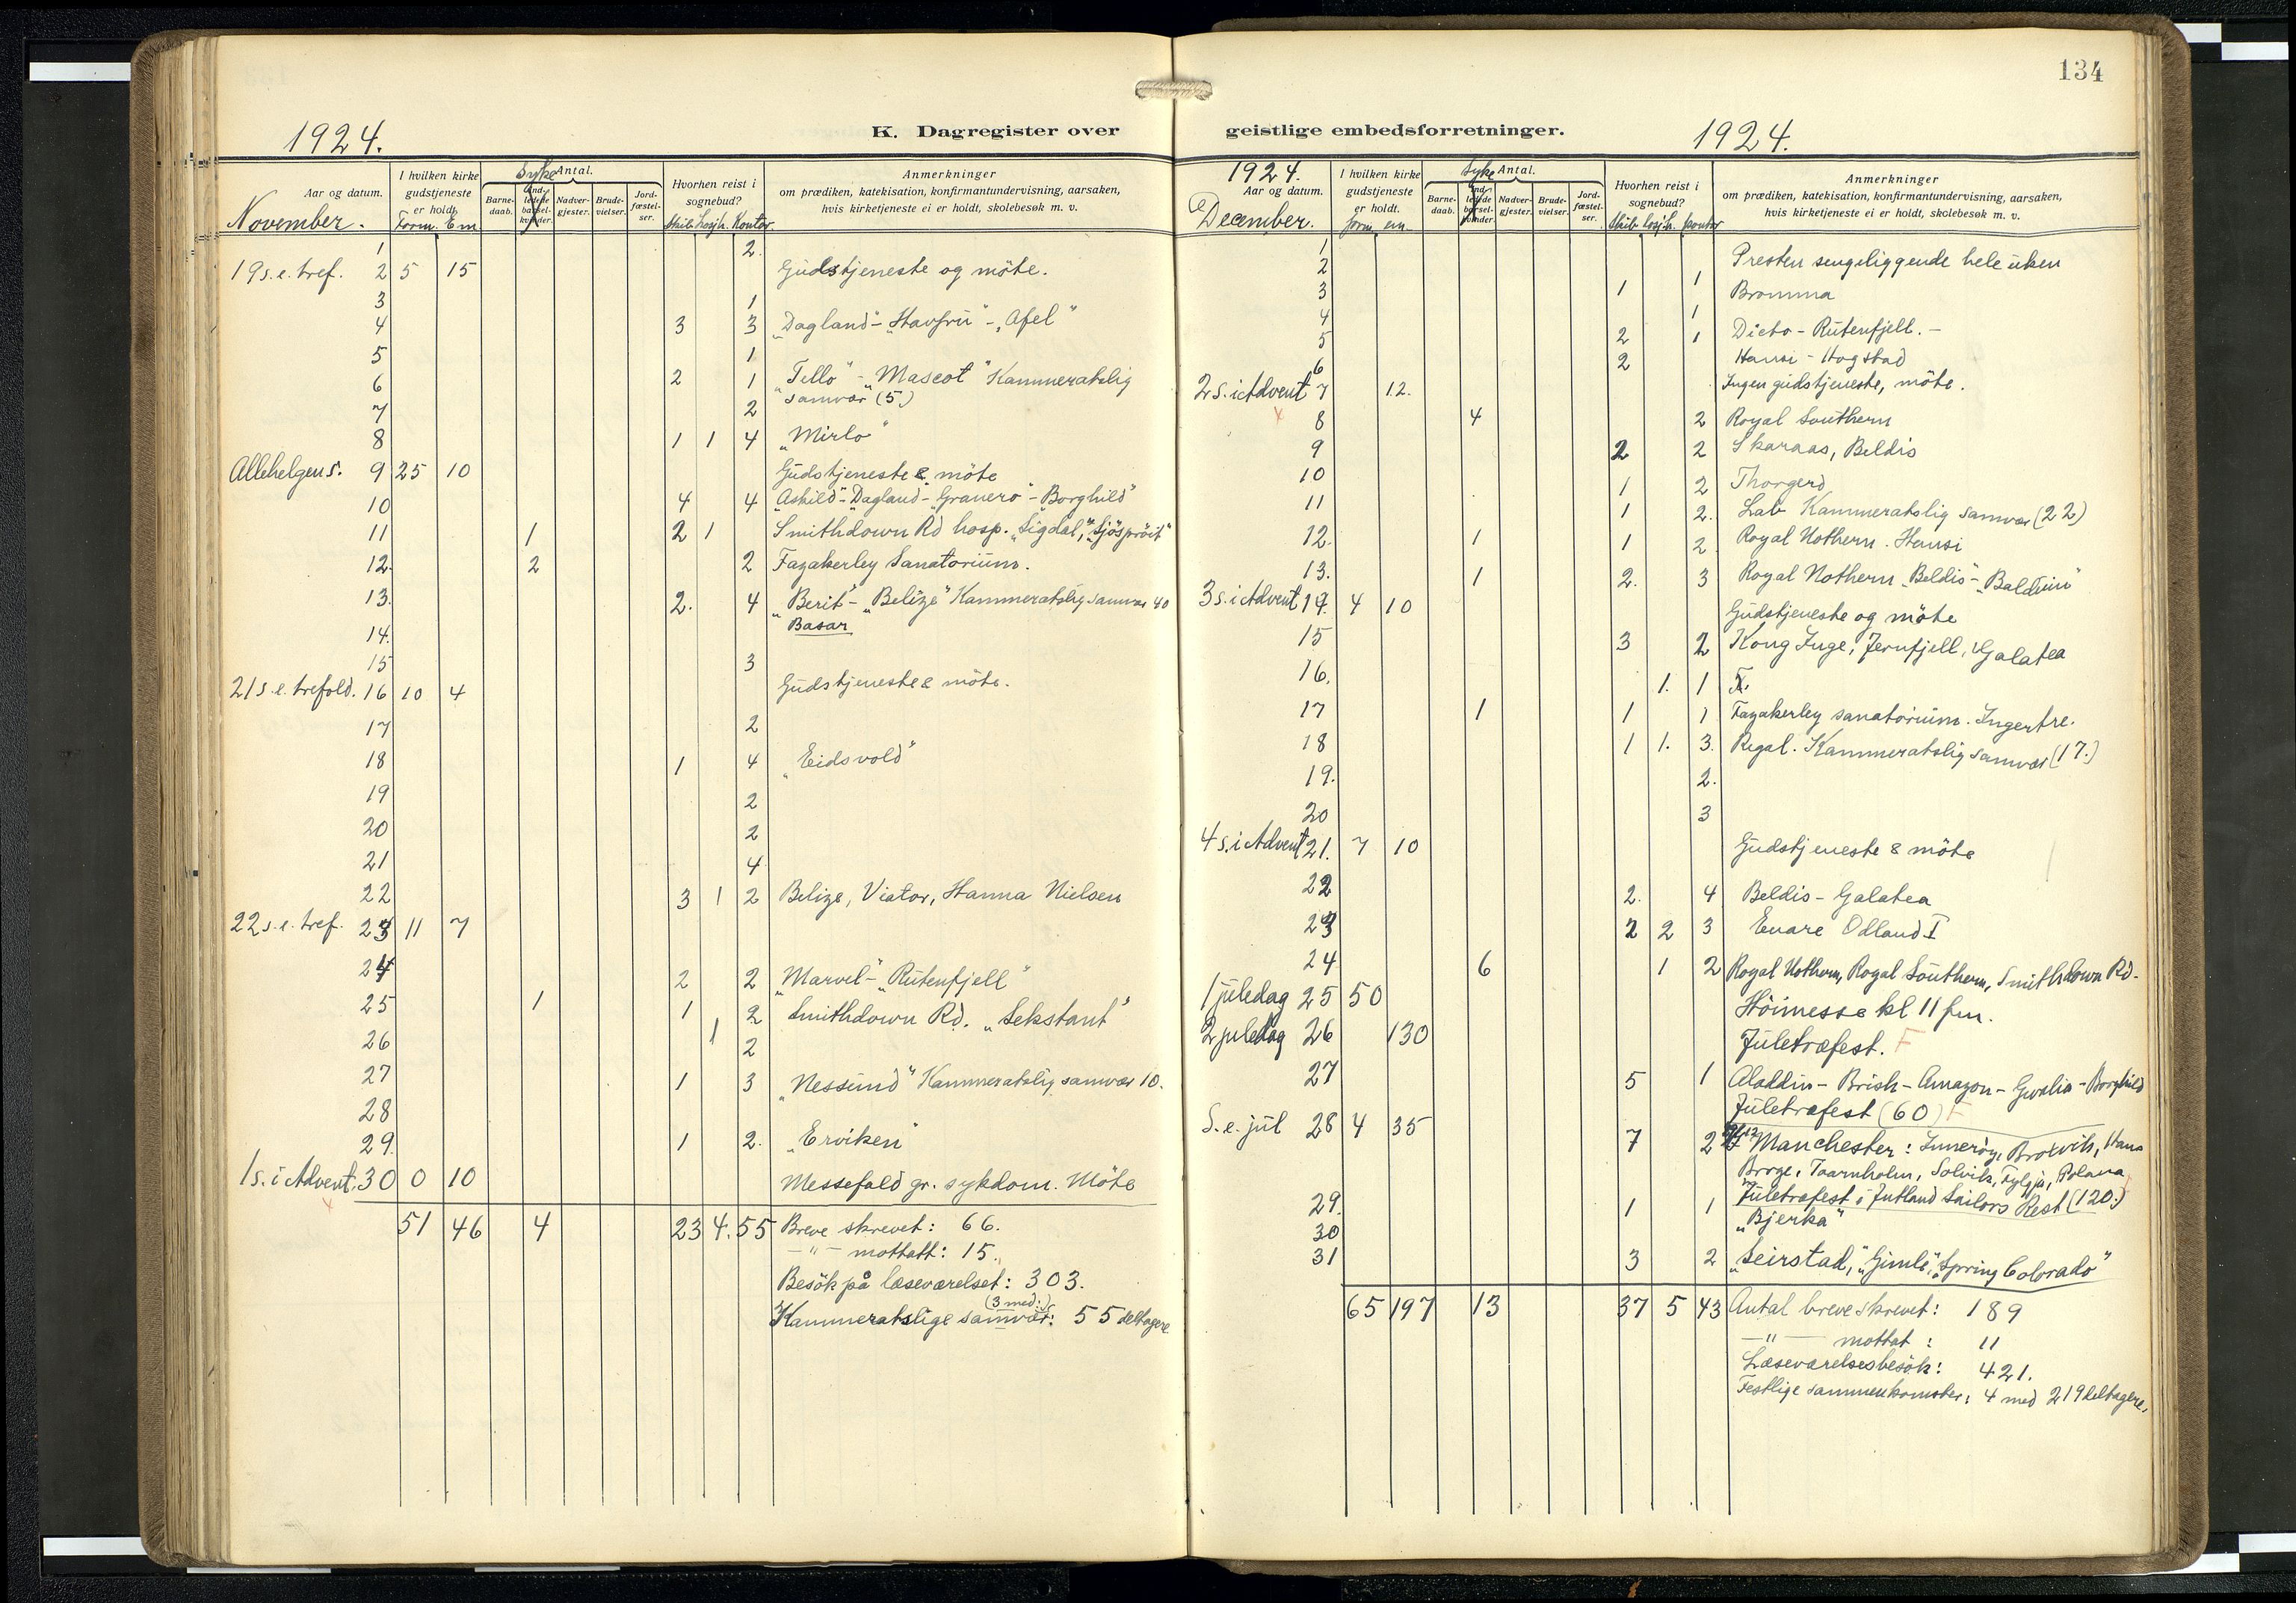 134
1924.
K. Dagregister over
Aar og datum.
I hvilken kirke gudstjeneste er holdt.
Syke
Antal.
Barne-daab.
Ind-ledede barsel-kvinder.
Nadver-gjester.
Brude-vielser.
Jord-fæstel-ser.
Hvorhen reist i sognebud?
Anmerkninger
om prædiken, katekisation, konfirmantundervisning, aarsaken,
hvis kirketjeneste ei er holdt, skolebesøk m. v.
November. Form. Em Skib Losjh. Kontor
1 2.
19 s. e. tref. 2 5 15 Gudstjeneste og möte.
3 1
4 3 3 „Dagland" - „Havfru" - „Afel"
5 1
6 2 1 „Tello" - „Mascot" Kammeratslig
samvær (5)
7 2
8 1 1 4 „Mirlo"
Allehelgens. 9 25 10 Gudstjeneste & möte
10 4 4 „Askild" - „Dagland - „Granero" - „Borghild"
11 1 2 1 Smithdown Rd hosp. „Sigdal", „Sjöspröit"
12. 2 2 Fazakerley Sanatorium.
13. 2. 4 „Berit" - „Belize" Kammeratslig samvær 40
Basar
14.
15 3
21 s. e. trefold. 16 10 4 Gudstjeneste & möte.
17 2
18 1 4 „Eidsvold"
19 2
20 2
21 4
22 3 1 2 Belize, Viator, Hanna Nielsen
22 s. e. tref. 23 11 7
24 2 2 „Marvel" - „Rutenfjell"
25 1 1 2 Smithdown Rd. „Sekstant"
26 1 2
27 1 3 „Nessund" Kammeratslig samvær 10.
28
29. 1 2. „Erviken"
1 s. i Advent. 30 0 10 Messefald gr. sykdom. Möte
51 46 4 23 4. 55 Breve skrevet: 66.
—"— mottatt: 15.
Besök på læseværelset: 303.
(3 med:)
Kammeratslige samvær: 55 deltagere
geistlige embedsforretninger.
1924.
1924.
Aar og datum.
I hvilken kirke gudstjeneste er holdt.
Syke
Antal.
Barne-daab.
Ind-ledede barsel-kvinder.
Nadver-gjester.
Brude-vielser.
Jord-fæstel-ser.
Hvorhen reist i sognebud?
Anmerkninger
om prædiken, katekisation, konfirmantundervisning, aarsaken,
hvis kirketjeneste ei er holdt, skolebesøk m. v.
December. form. em. Skib Losjh. kontor
1 Presten sengeliggende hele uken
2 1 1 Bromma
3 1
4 2 1 Dicto - Rutenfjell. -
5 2 Hansi - Hogstad
6
2 s. i Advent 7 12. Ingen gudstjeneste, möte.
8 4 2 Royal Southern
9 2 2 Skaraas, Beldis
10 1 2 Thorgerd
11 1 2. Lab Kammeratslig samvær (22)
12. 1 1 2 Royal Nothern. Hansi
13. 1 2. 3 Royal Nothern „Beldis" - „Balduin"
3 s. i Advent 14. 4 10 Gudstjeneste og möte
15 3 2 Kong Inge, Jernfjell, Galatea
16. 1. 1
17 1 1 1 Fazakerley sanatorium. Ingertre.
18 1 1. 3. Regal. Kammeratslig samvær (17.)
19. 2.
20 3
4 s. i Advent 21. 7 10 Gudstjeneste & möte
22 2. 4 Beldis - Galatea
23 2 2 3 Enare Odland I
24 6 1 2 Royal Nothern, Royal Southern, Smithdown Rd.
1 juledag 25 50 Höimesse kl 11 fm.
2 juledag 26 130 Juletræfest. F
27 5 1 Aladdin - Brisk - Amazon - Gwalia - Borghild
Juletræfest (60) F
S. e. jul 28 4 35 7 2 Manchester: Inneröy, Brokvik, Hans
Broge, Taarnholm, Solvik, Fylgja, Polana
Juletræfest i Jutland Sailors Rest (120.)
29. 1 1 „Bjerka"
30
31 3 2 „Seirstad", „Gimle", „Spring Colorado"
65 197 13 37 5 43 Antal breve skrevet: 189
—"— mottat: 11
Læseværelsesbesök: 421.
Festlige sammenkomster: 4 med 219 deltagere.